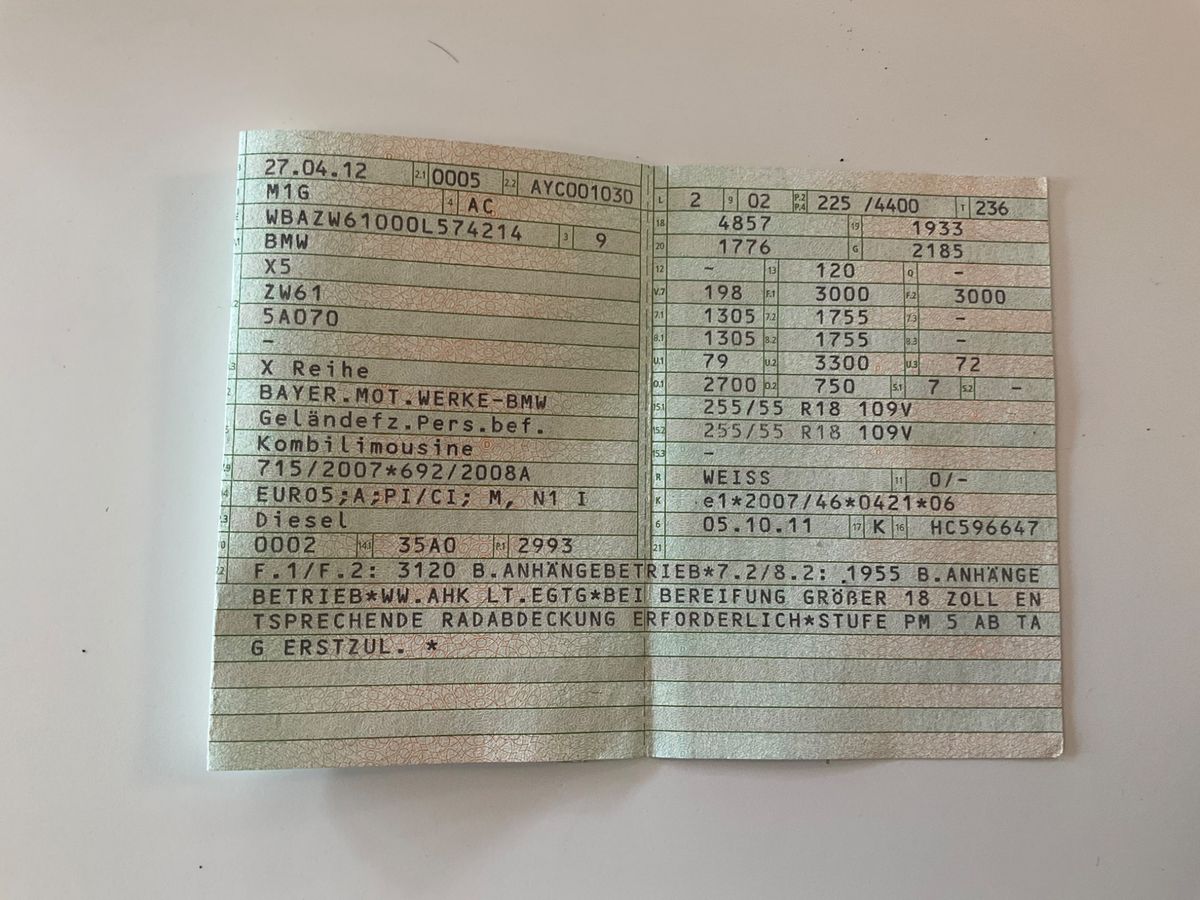 27.04.12 2.1 0005 2.2 AYC001030
M1G 4 AC
WBAZW61000L574214 3 9
BMW
X5
ZW61
5A070
–
X Reihe
BAYER.MOT.WERKE-BMW
Geländefz.Pers.bef.
Kombilimousine
715/2007*692/2008A
EURO5;A;PI/CI; M, N1 I
Diesel
0002 14.1 35A0 P.1 2993
L 2 9 02 P.2 P.4 225 /4400 T 236
18 4857 19 1933
20 1776 G 2185
12 – 13 120 Q –
V.7 198 F.1 3000 F.2 3000
7.1 1305 7.2 1755 7.3 –
8.1 1305 8.2 1755 8.3 –
U.1 79 U.2 3300 U.3 72
O.1 2700 O.2 750 S.1 7 S.2 –
15.1 255/55 R18 109V
15.2 255/55 R18 109V
15.3 –
R WEISS 11 0/-
K e1*2007/46*0421*06
6 05.10.11 17 K 16 HC596647
21
F.1/F.2: 3120 B.ANHÄNGEBETRIEB*7.2/8.2: 1955 B.ANHÄNGE
BETRIEB*WW.AHK LT.EGTG*BEI BEREIFUNG GRÖßER 18 ZOLL EN
TSPRECHENDE RADABDECKUNG ERFORDERLICH*STUFE PM 5 AB TA
G ERSTZUL. *